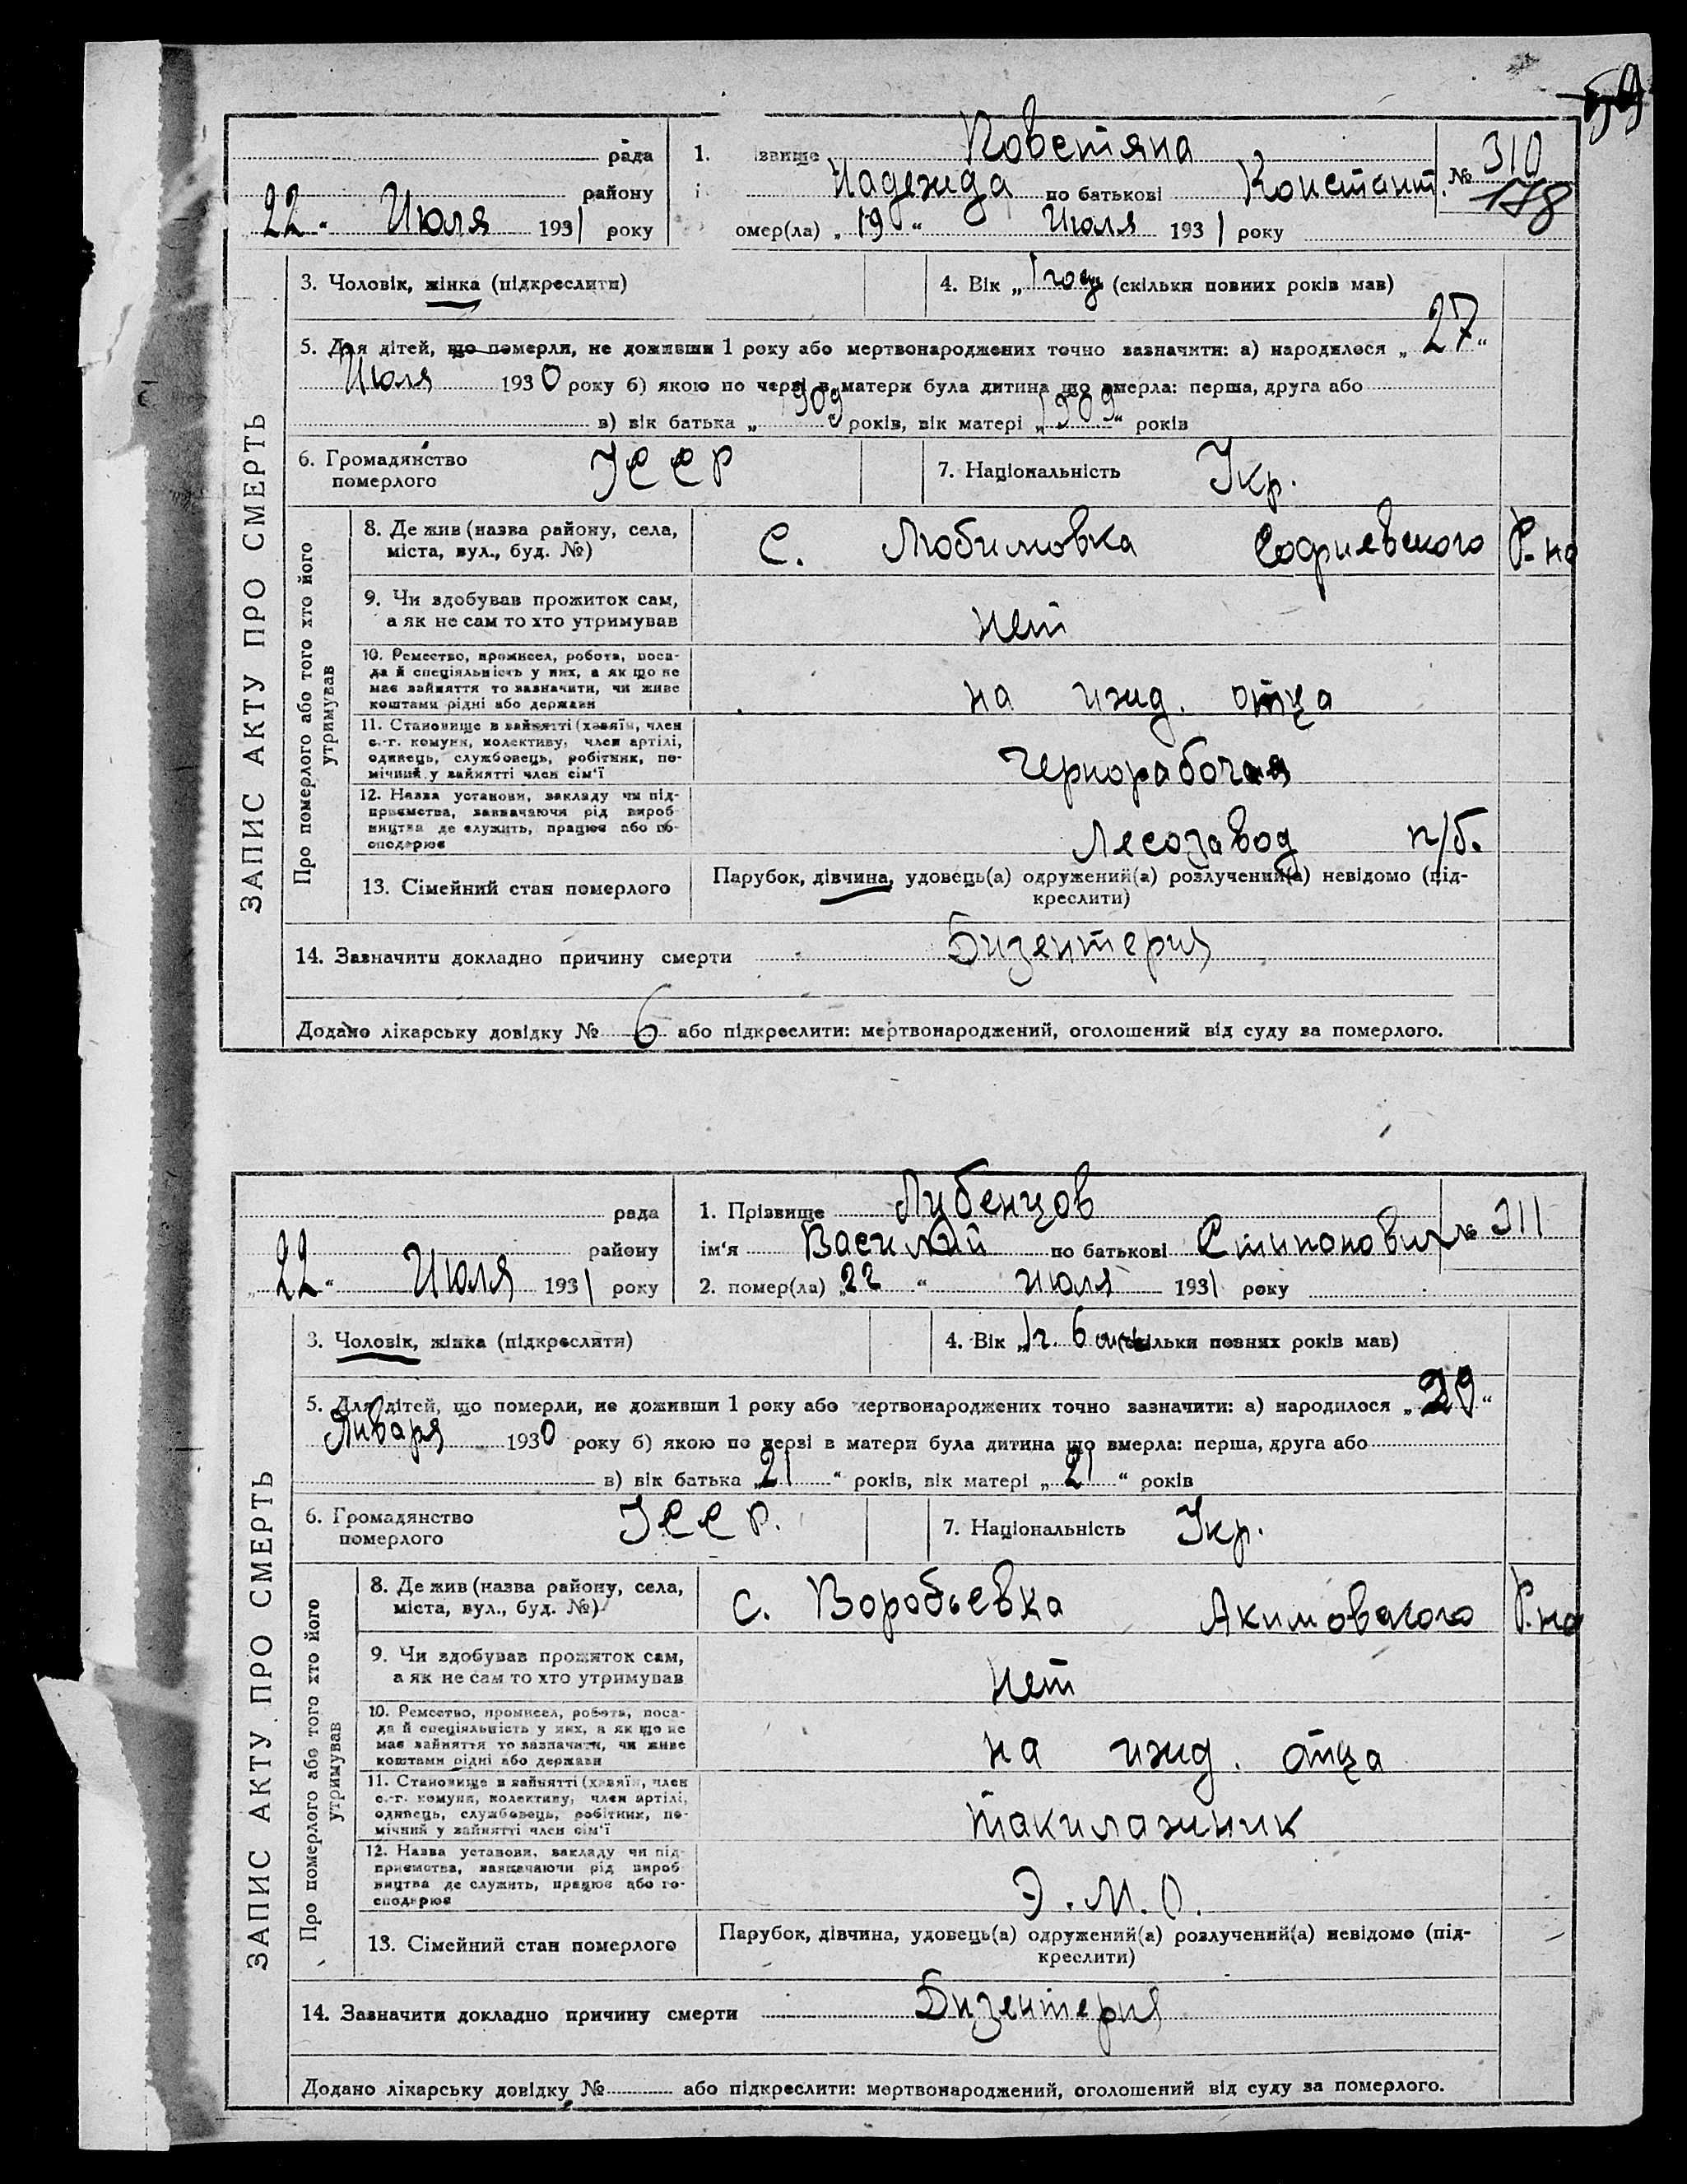 59
рада 1. ізвище Коветяна № 310
району і Надежда по батькові Констант. 178
22 " Июля 1931 року омер(ла) „ 19 " Июля 1931 року
3. Чоловік, жінка (підкреслити) 4. Вік „ 1 год (скільки повних років мав)
5. Для дітей, що померли, не доживши 1 року або мертвонароджених точно зазначити: а) народилося „ 27 "
Июля 1930 року б) якою по черзі в матери була дитина що вмерла: перша, друга або
в) вік батька „ 1909 років, вік матері „ 1909 " років
6. Громадянство померлого УССР 7. Національність Укр.
8. Де жив (назва району, села, міста, вул., буд. №) С. Любимовка Софиевского Р-на
9. Чи здобував прожиток сам, а як не сам то хто утримував нет
10. Ремество, промисел, робота, посада й спеціяльність у них, а як що не має зайняття то зазначити, чи живе коштами рідні або держави на ижд. отца
11. Становище в зайнятті (хазяїн, член с.-г. комуни, колективу, член артілі, одинець, службовець, робітник, помічний у зайнятті член сім'ї Чернорабочая
12. Назва установи, закладу чи підприємства, зазначаючи рід виробництва де служить, працює або господарює Лесозавод п/б.
13. Сімейний стан померлого Парубок, дівчина, удовець(а) одружений(а) розлучений(а) невідомо (підкреслити)
14. Зазначити докладно причину смерти Дизентерия
Додано лікарську довідку № 6 або підкреслити: мертвонароджений, оголошений від суду за померлого.
ЗАПИС АКТУ ПРО СМЕРТЬ
Про померлого або того хто його утримував
рада 1. Прізвище Лубенцов
району ім'я Василий по батькові Стипонович № 311
„ 22 " Июля 1931 року 2. помер(ла) „ 22 " июля 1931 року
3. Чоловік, жінка (підкреслити) 4. Вік „ 1 г. 6 м (скільки повних років мав)
5. Для дітей, що померли, не доживши 1 року або мертвонароджених точно зазначити: а) народилося „ 29 "
Января 1930 року б) якою по черзі в матери була дитина що вмерла: перша, друга або
в) вік батька „ 21 " років, вік матері „ 21 " років
6. Громадянство померлого УССР. 7. Національність Укр.
8. Де жив (назва району, села, міста, вул., буд. №) с. Воробьевка Акимовского Р-на
9. Чи здобував прожиток сам, а як не сам то хто утримував нет
10. Ремество, промисел, робота, посада й спеціяльність у них, а як що не має зайняття то зазначити, чи живе коштами рідні або держави на ижд. отца
11. Становище в зайнятті (хазяїн, член с.-г. комуни, колективу, член артілі, одинець, службовець, робітник, помічний у зайнятті член сім'ї такилажник
12. Назва установи, закладу чи підприємства, зазначаючи рід виробництва де служить, працює або господарює Э.М.О.
13. Сімейний стан померлого Парубок, дівчина, удовець(а) одружений(а) розлучений(а) невідомо (підкреслити)
14. Зазначити докладно причину смерти Дизентерия
Додано лікарську довідку № або підкреслити: мертвонароджений, оголошений від суду за померлого.
ЗАПИС АКТУ ПРО СМЕРТЬ
Про померлого або того хто його утримував